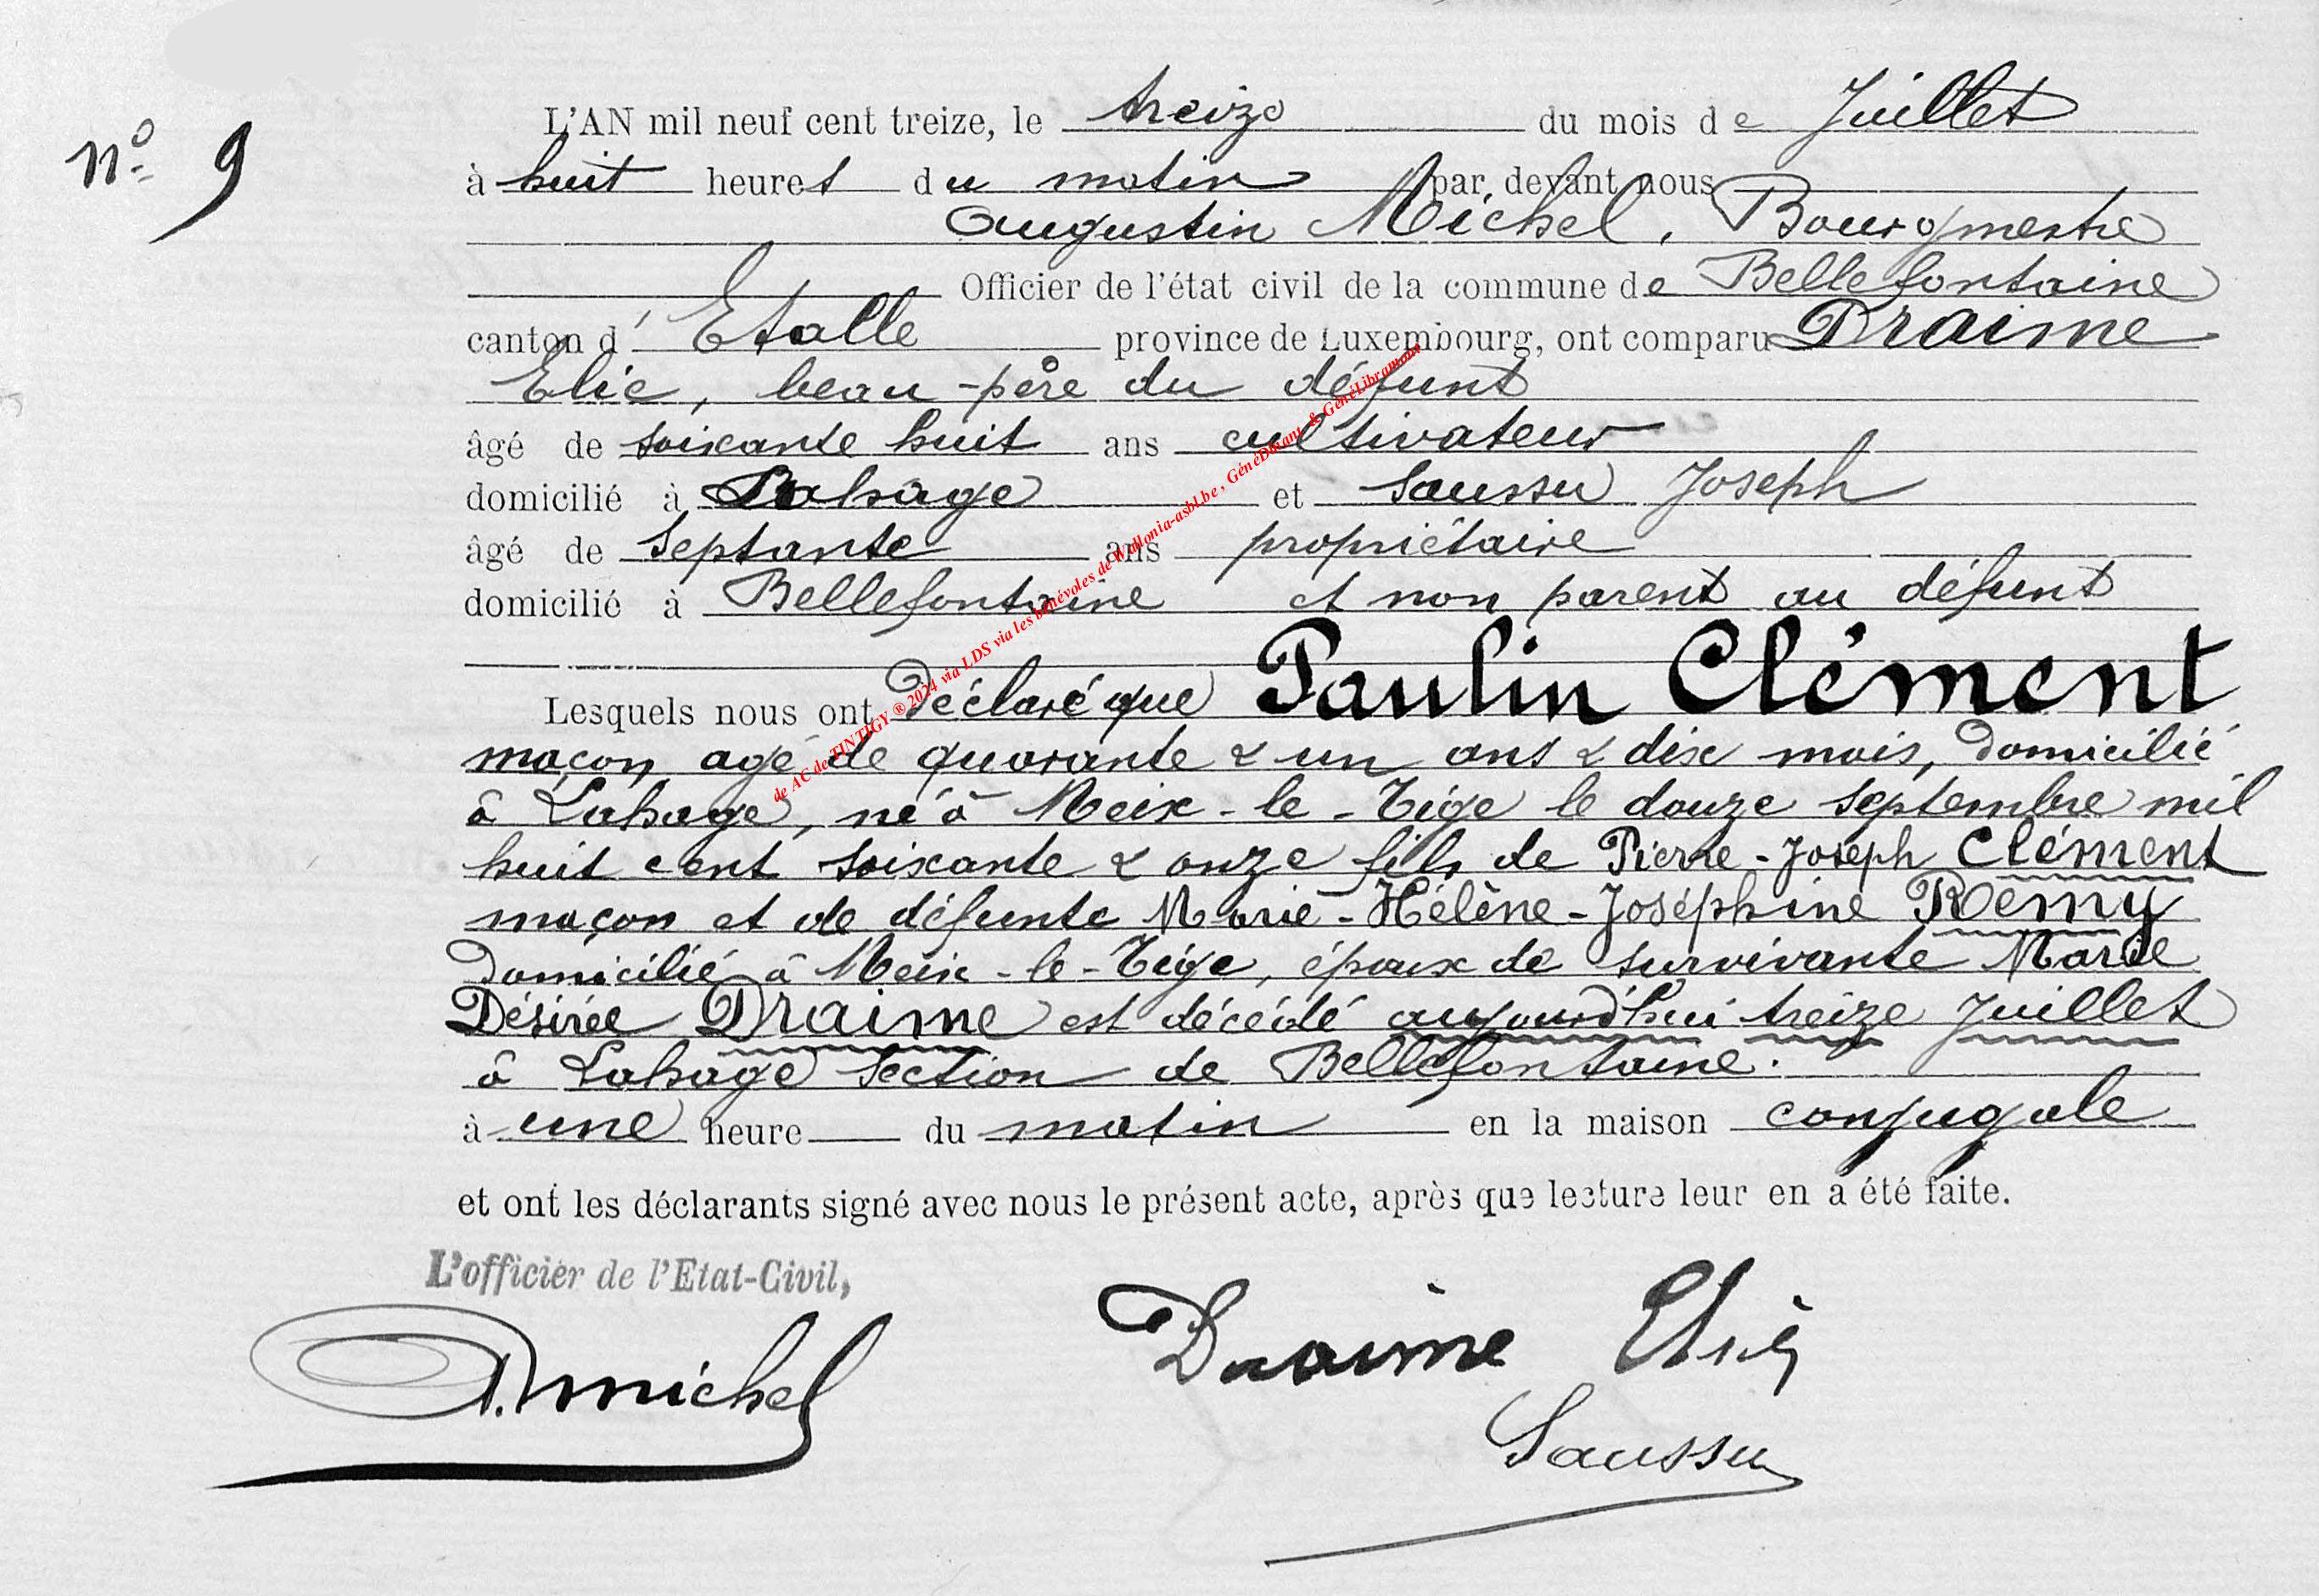 N° 9
L'AN mil neuf cent treize, le treize du mois de Juillet
à huit heures du matin par devant nous
Augustin Michel, Bourgmestre
Officier de l'état civil de la commune de Bellefontaine
canton d'Etalle province de Luxembourg, ont comparu Draime
Elie, beau-père du défunt
âgé de soixante huit ans cultivateur
domicilié à Lahage et Saussu Joseph
âgé de septante ans propriétaire
domicilié à Bellefontaine et non parent au défunt
Lesquels nous ont déclaré que Paulin Clément
maçon, agé de quarante & un ans & dix mois, domicilié
à Lahage, né à Meix-le-Tige le douze septembre mil
huit cent soixante & onze fils de Pierre-Joseph Clément
maçon et de défunte Marie-Hélène-Joséphine Remy
domicilié à Meix-le-Tige, époux de survivante Marie
Désirée Draime est décédé aujourd'hui treize Juillet
à Lahage section de Bellefontaine.
à une heure du matin en la maison conjugale
et ont les déclarants signé avec nous le présent acte, après que lecture leur en a été faite.
L'officier de l'Etat-Civil,
A. Michel
Draime Elie
Saussu
de AC de TINTIGY ® 2024 via LDS via les bénévoles de Wallonia-asbl.be, GénéDinant & GénéLibramont